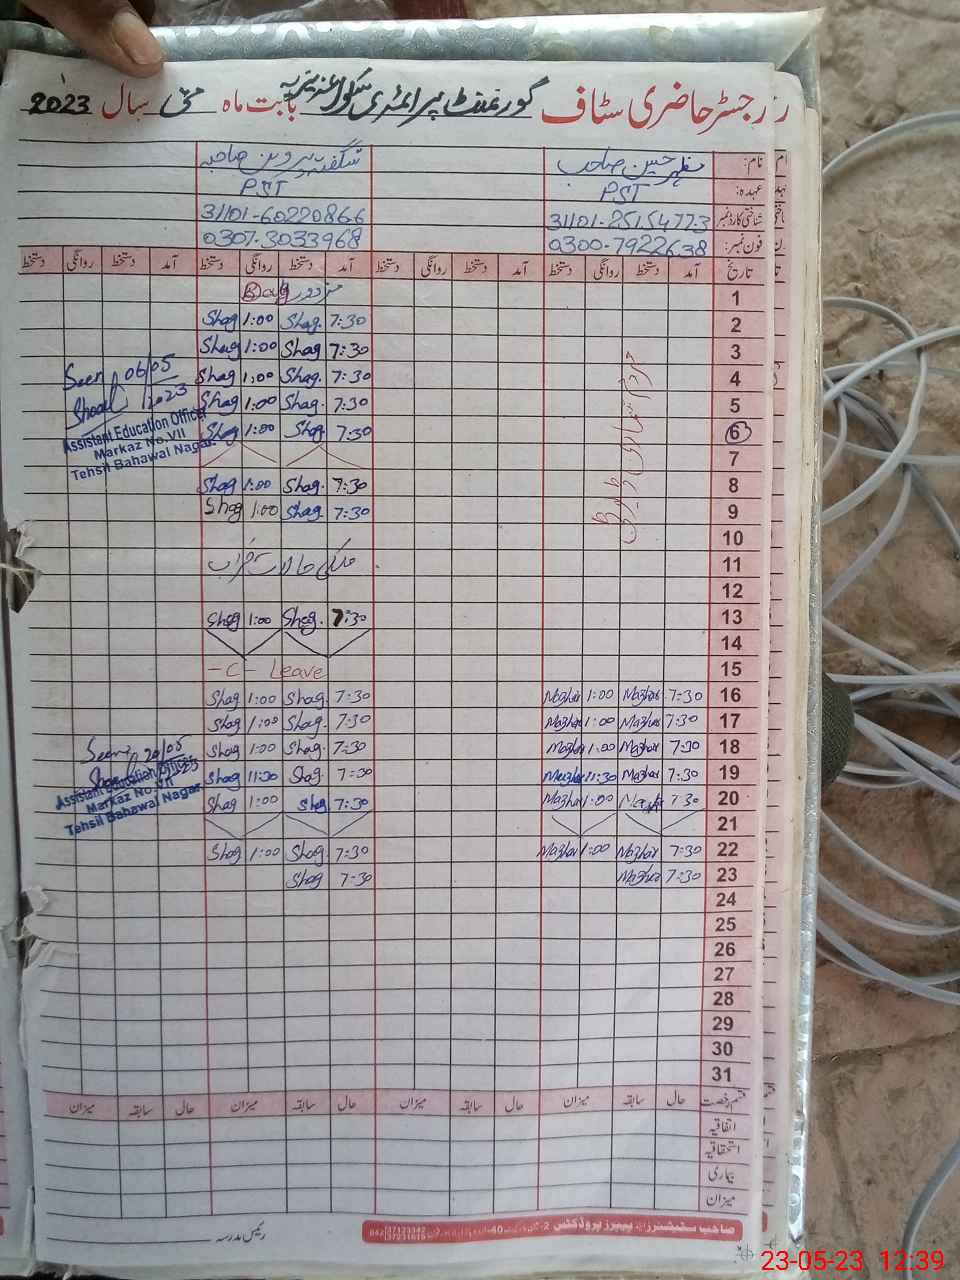 رجسٹر حاضری سٹاف گورنمنٹ پرائمری سکول بابت ماہ مئی سال 2023
نام: مظہر حسین صاحب شگفتہ پروین صاحبہ
عہدہ: PST PST
شناختی کارڈ نمبر 31101-2515477-3 31101-6022086-6
فون نمبر: 0300-7922638 0307-3033968
تاریخ آمد دستخط روانگی دستخط آمد دستخط روانگی دستخط آمد دستخط روانگی دستخط آمد دستخط روانگی دستخط
1 مزدور Day
2 7:30 Shag. 1:00 Shag
3 7:30 Shag 1:00 Shag
4 7:30 Shag. 1:00 Shag
5 7:30 Shag. 1:00 Shag
6 7:30 Shag. 1:00 Shag
Seen 06/05/2023
Assistant Education Officer
Markaz No.VII
Tehsil Bahawal Nagar
7
8 7:30 Shag. 1:00 Shag
9 7:30 Shag. 1:00 Shag
10
11 ملکی حالات خراب
12
13 7:30 Shag. 1:00 Shag
14
15 -C- Leave
16 7:30 Mazhar 1:00 Mazhar 7:30 Shag. 1:00 Shag
17 7:30 Mazhar 1:00 Mazhar 7:30 Shag. 1:00 Shag
18 7:30 Mazhar 1:00 Mazhar 7:30 Shag. 1:00 Shag
19 7:30 Mazhar 11:30 Mazhar 7:30 Shag. 11:30 Shag
20 7:30 Mazhar 1:00 Mazhar 7:30 Shag 1:00 Shag
Seen 20/05
Assistant Education Officer
Markaz No.VII
Tehsil Bahawal Nagar
21
22 7:30 Mazhar 1:00 Mazhar 7:30 Shag. 1:00 Shag
23 7:30 Mazhar 7:30 Shag
24
25
26
27
28
29
30
31
قسم رخصت حال سابقہ میزان حال سابقہ میزان حال سابقہ میزان حال سابقہ میزان
اتفاقیہ
استحقاقیہ
بیماری
میزان
صاحب سٹیشنرز اینڈ پیپرز پروڈکٹس
رئیس مدرسہ
23-05-23 12:39